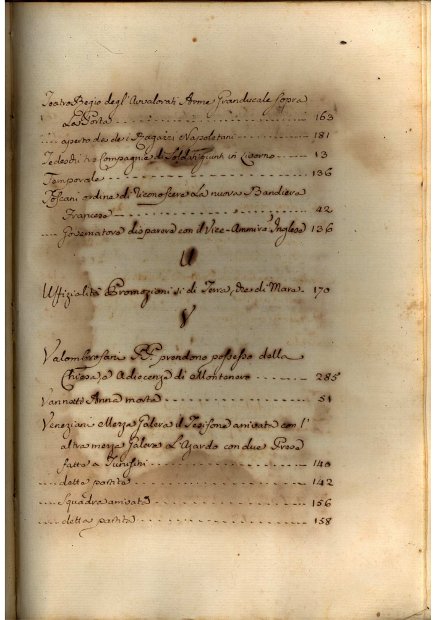 Teatro Regio degl' Avvalorati Arme Granducale sopra
La Porta 163
aperto da dei Ragazzi Napoletani 181
Tedeschi tre Compagnie di Soldati giunti in Livorno 13
Temporale 136
Toscani ordine di riconoscere La nuova Bandiera
Francese 42
Governatore con il Vice-Ammirà Inglese 136
U
Uffizialità Promozioni sì di Terra, che di Mare 170
V
Valombrosani PP. prendono possesso della
Chiesa a di Montenero 285
Vannetti Anna morta 51
Veneziani Mezza Galera il Tesifone arrivata con l'
altra mezza Galera L'Azardo con due Prese
fatte a Tunisini 140
detta partita 142
Squadra arrivata 156
detta partita 158